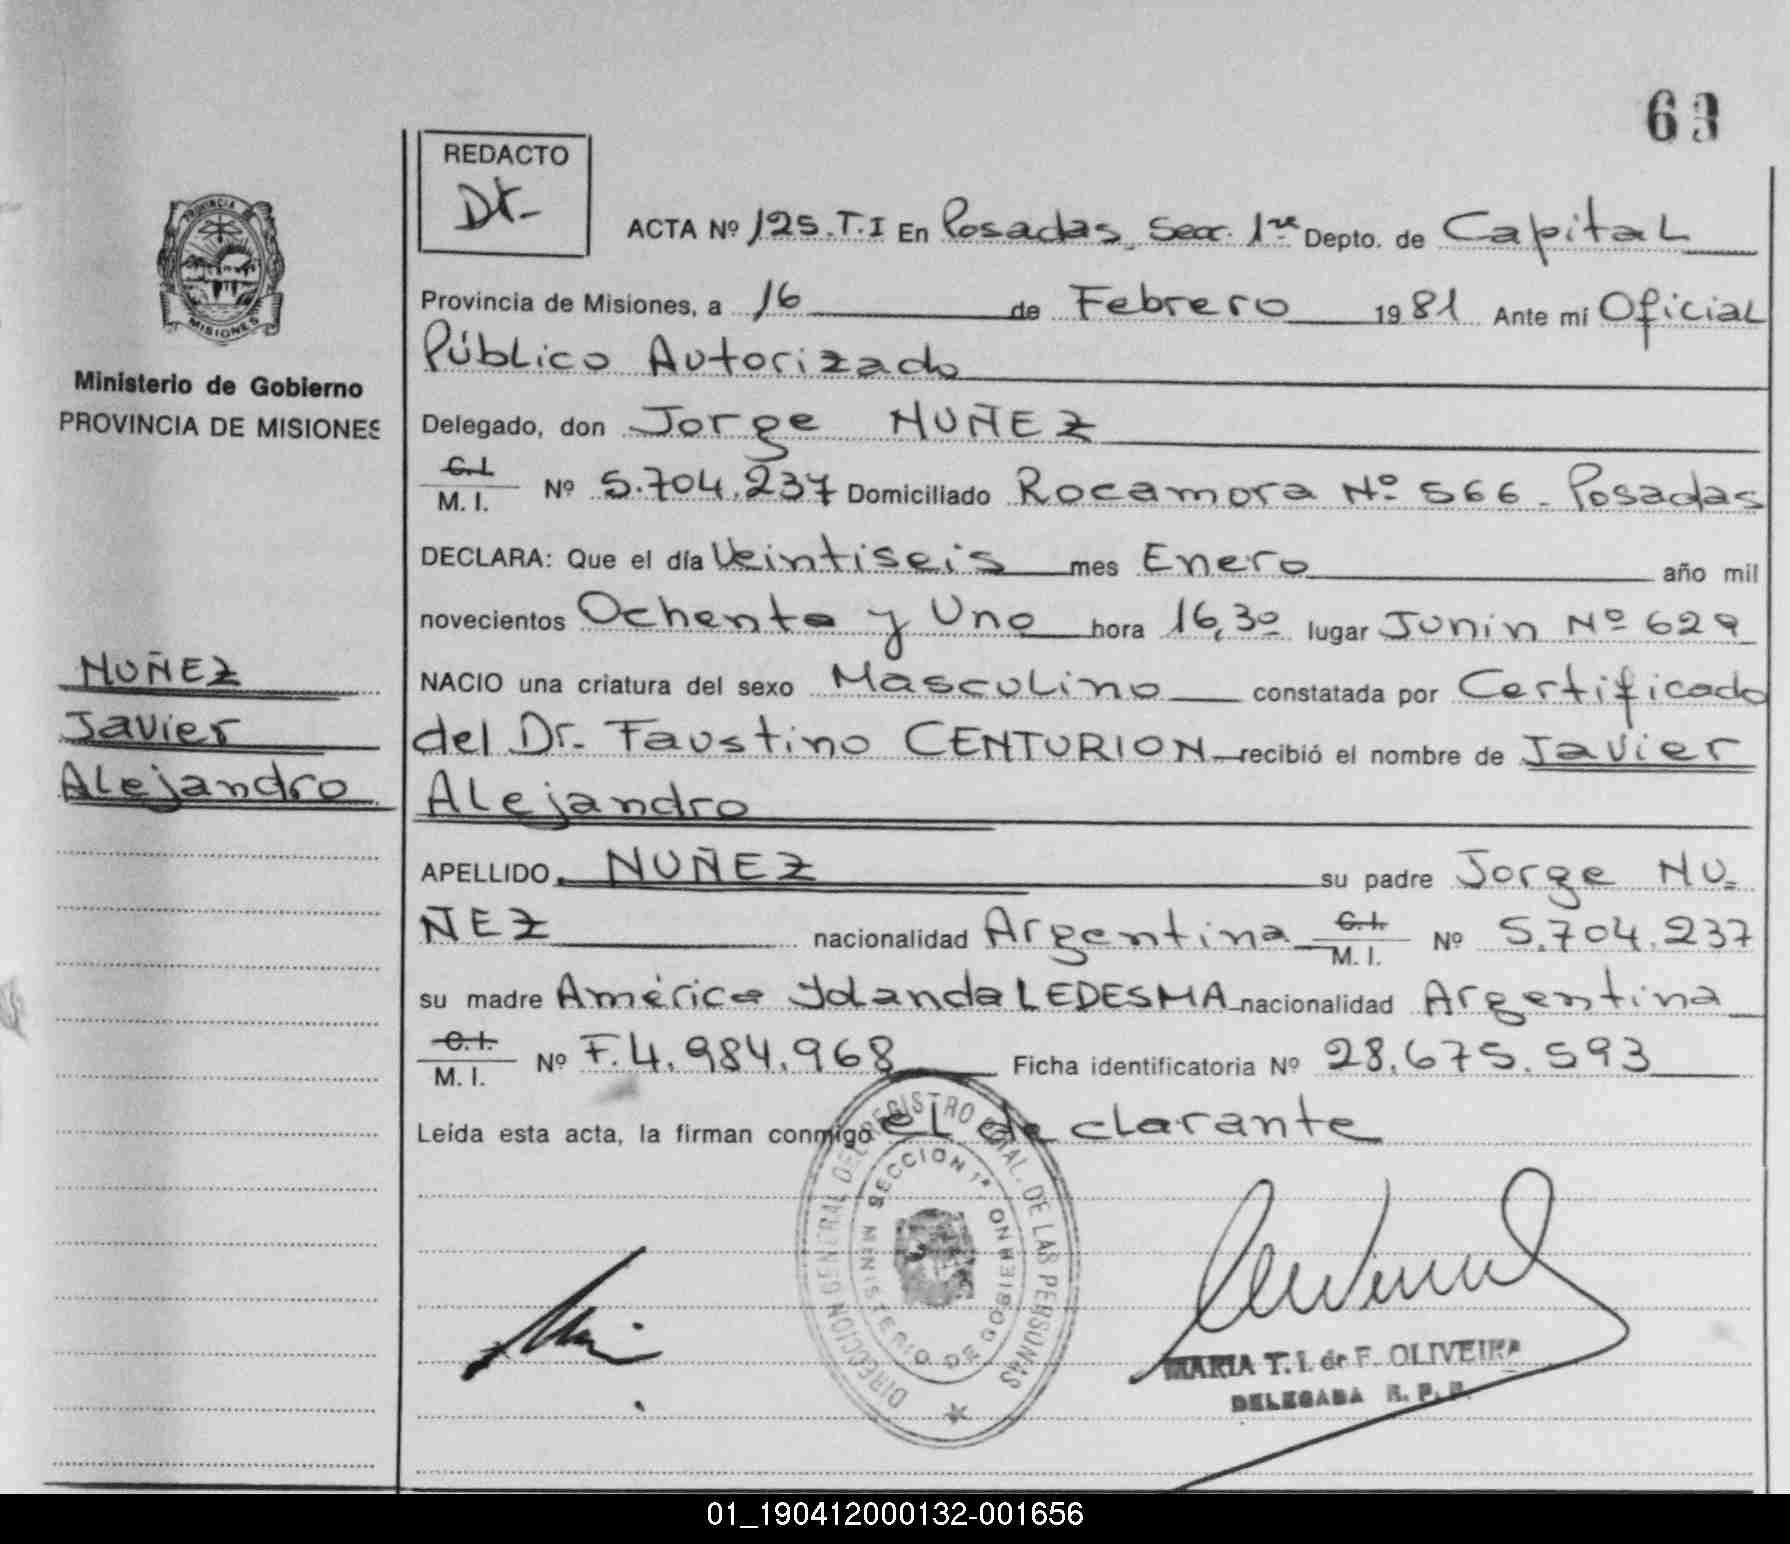 63
REDACTO
Dt-
PROVINCIA DE
MISIONES
ACTA Nº 125.T.I En Posadas, Secc. 1ra Depto. de Capital
Provincia de Misiones, a 16 de Febrero 1981 Ante mi Oficial
Público Autorizado
Ministerio de Gobierno
PROVINCIA DE MISIONES
Delegado, don Jorge NUÑEZ
C.I. M. I. Nº 5.704.237 Domiciliado Rocamora Nº 566 - Posadas
DECLARA: Que el día Veintiseis mes Enero año mil
novecientos Ochenta y Uno hora 16,30 lugar Junin Nº 629
NUÑEZ
Javier
Alejandro
NACIO una criatura del sexo Masculino constatada por Certificado
del Dr. Faustino CENTURION recibió el nombre de Javier
Alejandro
APELLIDO NUÑEZ su padre Jorge NU-
ÑEZ nacionalidad Argentina C.I. M. I. Nº 5.704.237
su madre América Yolanda LEDESMA nacionalidad Argentina
C.I. M. I. Nº F.4.984.968 Ficha identificatoria Nº 28.675.593
Leída esta acta, la firman conmigo el declarante
DIRECCION GENERAL DEL REGISTRO PCIAL. DE LAS PERSONAS
SECCION 1ª. MINISTERIO DE GOBIERNO
MARIA T. I. de F. OLIVEIRA
DELEGADA R. P. P.
01_190412000132-001656